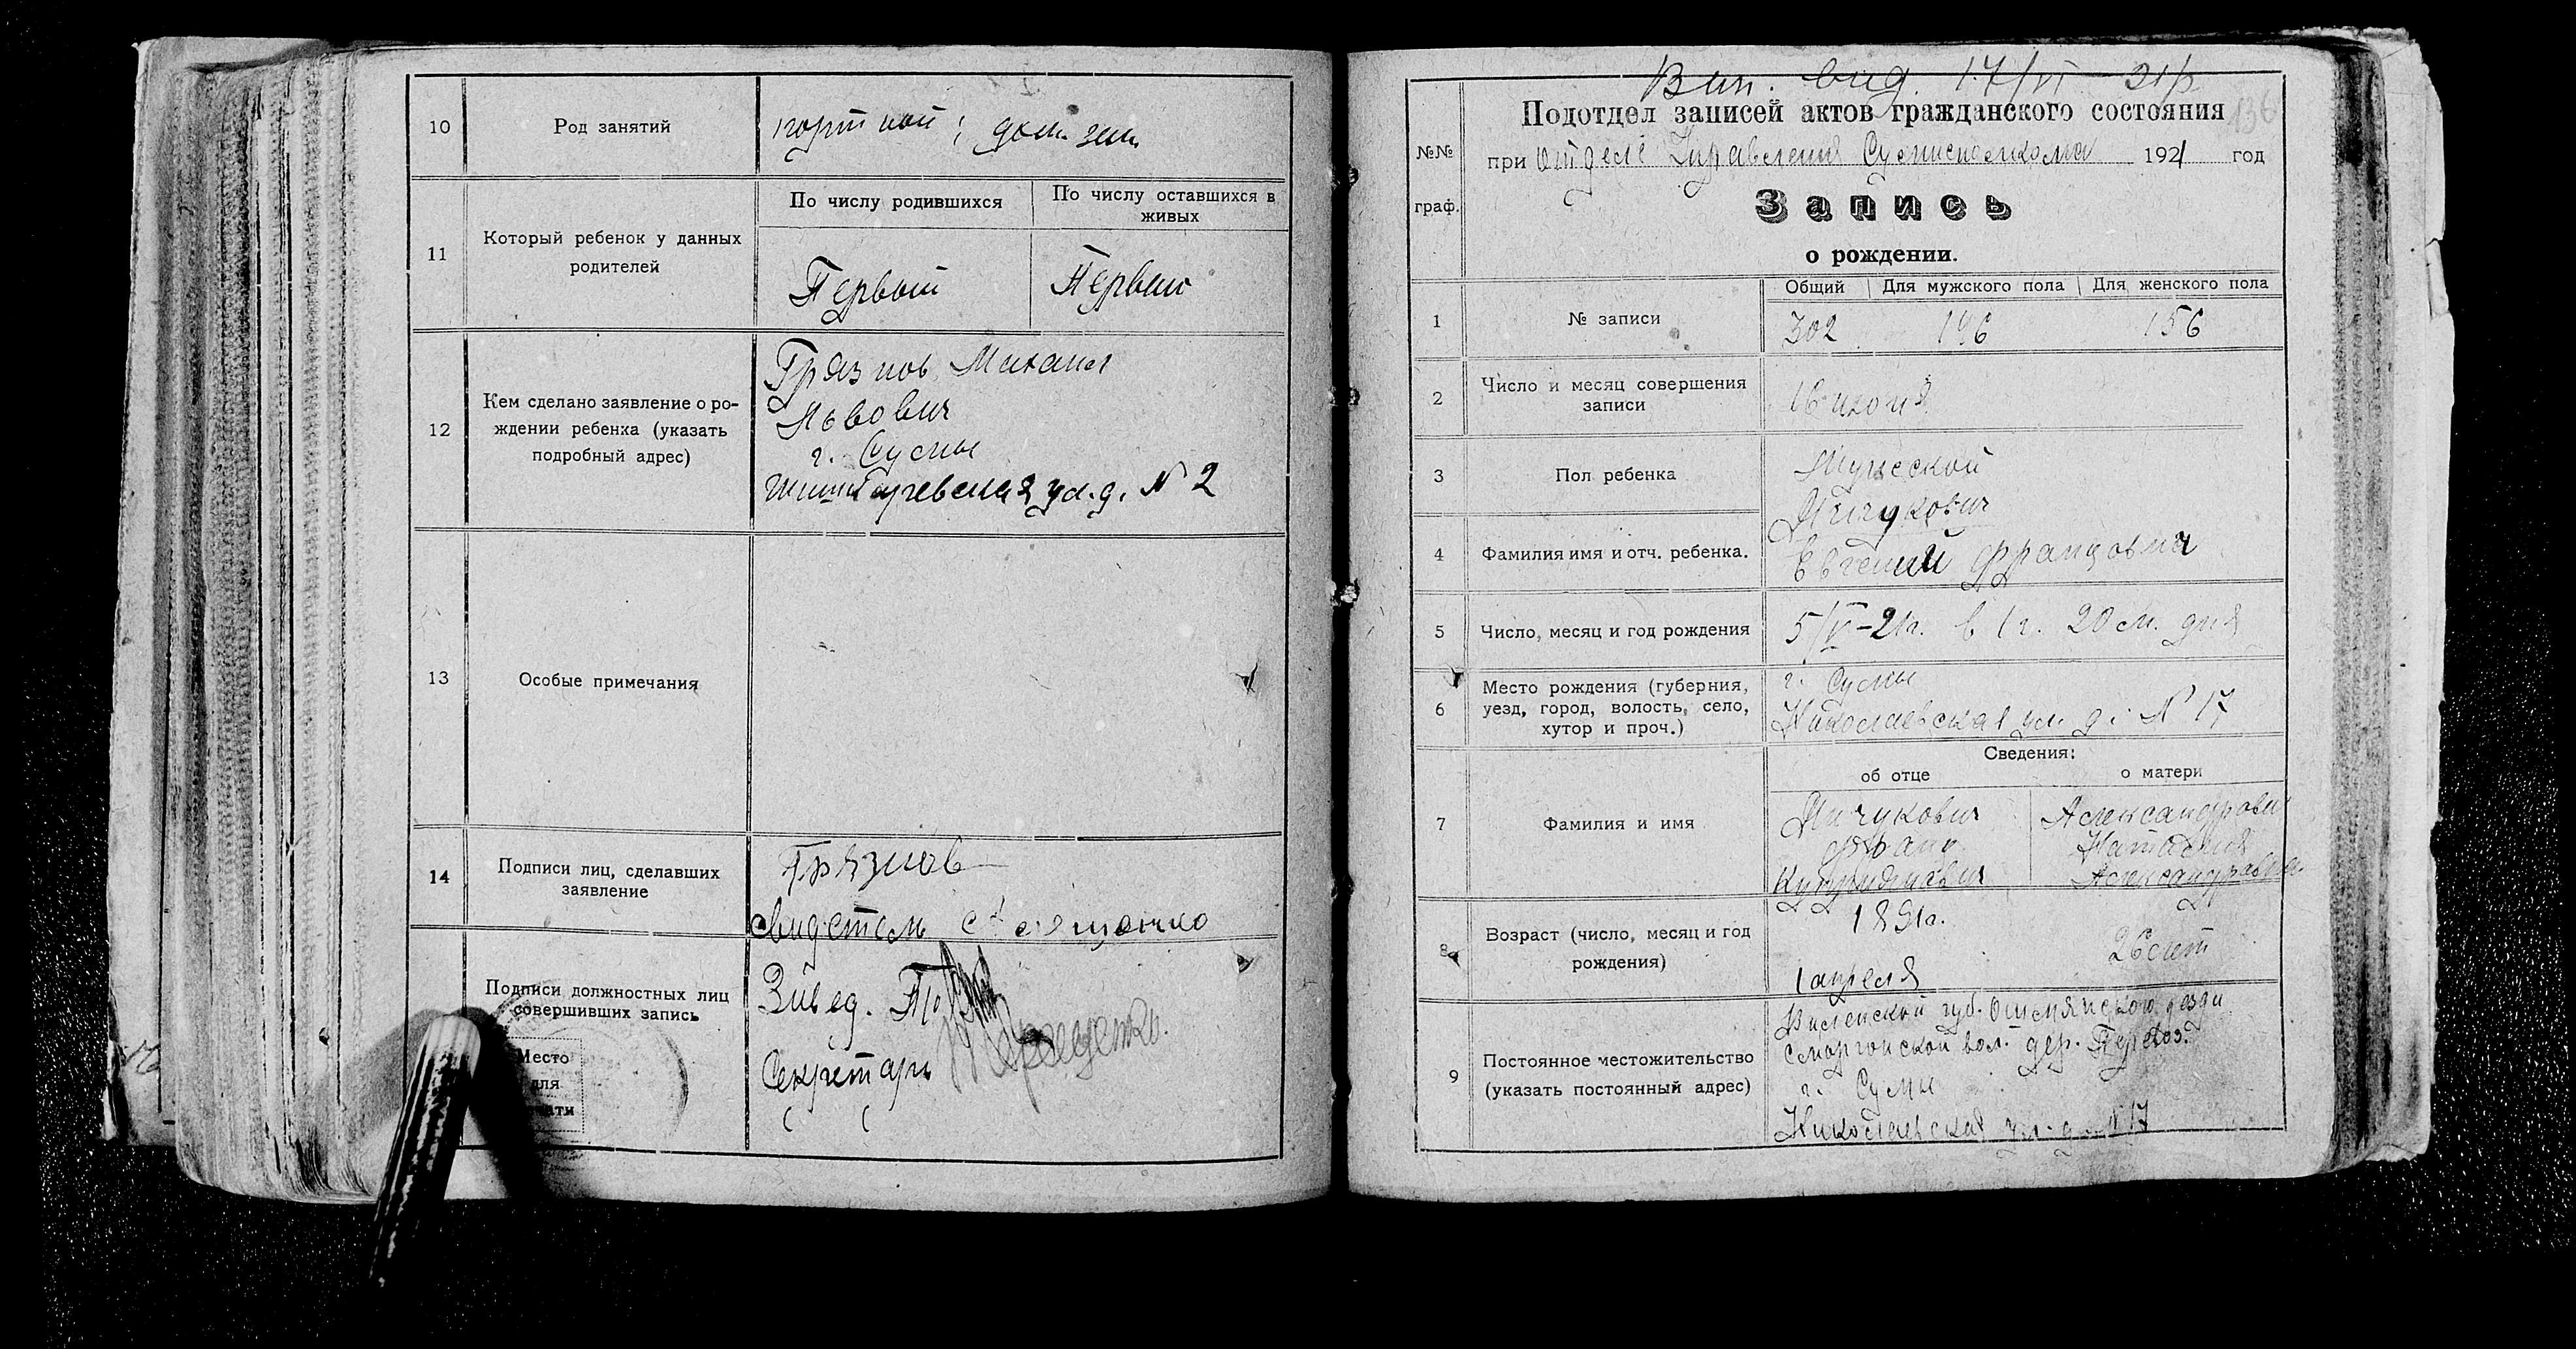 10
Род занятий
портной; дом. зан.
11
Который ребенок у данных
родителей
По числу родившихся
По числу оставшихся в
живых
Первый
Первый
12
Кем сделано заявление о ро-
ждении ребенка (указать
подробный адрес)
Грязнов Михаил
Львович
г. Сумы
ул. д. № 2
13
Особые примечания
14
Подписи лиц, сделавших
заявление
Грязнов
свидетель
Подписи должностных лиц
совершивших запись
Завед.
Секретарь
Место
для
ати
Вип. вид. 17/VI 21р
136
№№
граф.
Подотдел записей актов гражданского состояния
при Отделе Управления Сумисполкома 1921 год
Запись
о рождении.
1
№ записи
Общий
Для мужского пола
Для женского пола
302
146
156
2
Число и месяц совершения
записи
16 июня
3
Пол ребенка
Мужской
4
Фамилия имя и отч. ребенка.
Мичукович
Евгений Францович
5
Число, месяц и год рождения
5/VI-21г. в 1 г. 20 м. дня
6
Место рождения (губерния,
уезд, город, волость, село,
хутор и проч.)
г. Сумы
Николаевская ул. д. № 17
Сведения:
об отце
о матери
7
Фамилия и имя
Мичукович
Франц
Александрович
Наталия
Александровна
8
Возраст (число, месяц и год
рождения)
1891г.
1 апреля
26 лет
9
Постоянное местожительство
(указать постоянный адрес)
Виленской губ. Ошмянского уезда
Сморгонской вол. дер. Перевоз.
г. Сумы
Николаевская ул. д. № 17